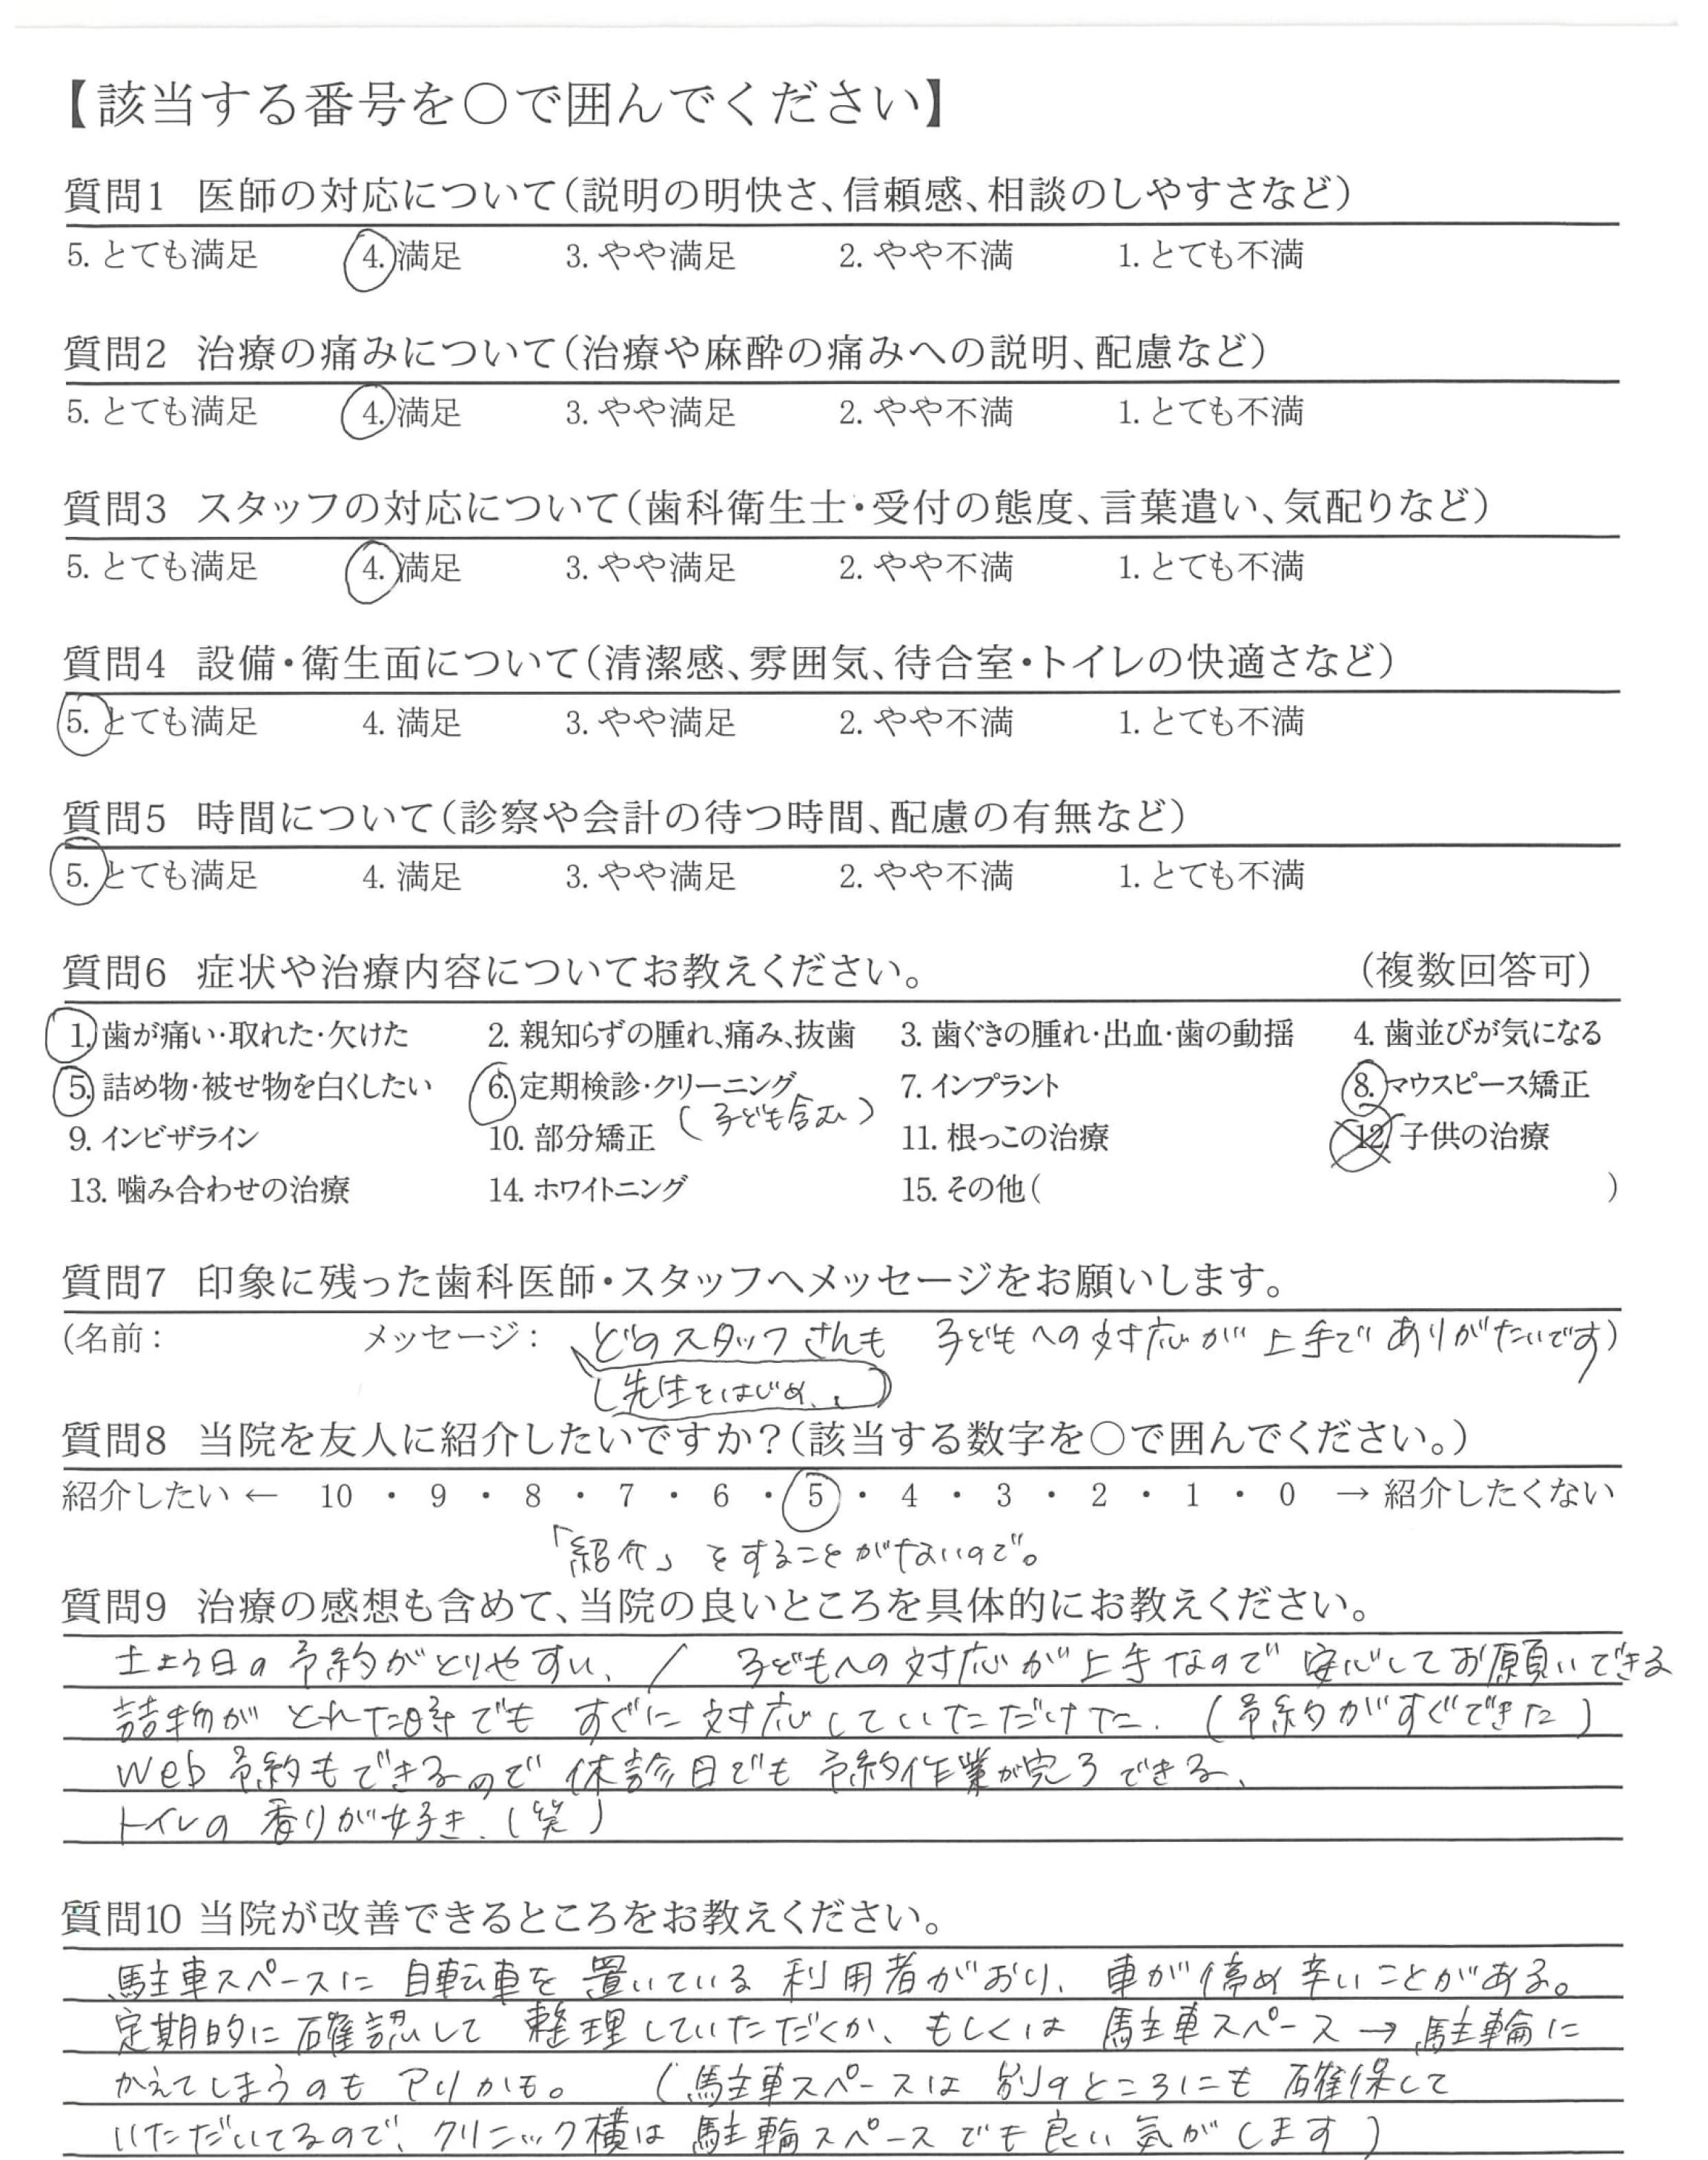 【該当する番号を○で囲んでください】
質問1 医師の対応について(説明の明快さ、信頼感、相談のしやすさなど)
5. とても満足 4. 満足 3. やや満足 2. やや不満 1. とても不満
質問2 治療の痛みについて(治療や麻酔の痛みへの説明、配慮など)
5. とても満足 4. 満足 3. やや満足 2. やや不満 1. とても不満
質問3 スタッフの対応について(歯科衛生士・受付の態度、言葉遣い、気配りなど)
5. とても満足 4. 満足 3. やや満足 2. やや不満 1. とても不満
質問4 設備・衛生面について(清潔感、雰囲気、待合室・トイレの快適さなど)
5. とても満足 4. 満足 3. やや満足 2. やや不満 1. とても不満
質問5 時間について(診察や会計の待つ時間、配慮の有無など)
5. とても満足 4. 満足 3. やや満足 2. やや不満 1. とても不満
質問6 症状や治療内容についてお教えください。 (複数回答可)
1. 歯が痛い・取れた・欠けた 2. 親知らずの腫れ、痛み、抜歯 3. 歯ぐきの腫れ・出血・歯の動揺 4. 歯並びが気になる
5. 詰め物・被せ物を白くしたい 6. 定期検診・クリーニング 7. インプラント 8. マウスピース矯正
(子ども含む)
9. インビザライン 10. 部分矯正 11. 根っこの治療 12. 子供の治療
13. 噛み合わせの治療 14. ホワイトニング 15. その他( )
質問7 印象に残った歯科医師・スタッフへメッセージをお願いします。
(名前: メッセージ: どのスタッフさんも 子どもへの対応が上手でありがたいです)
(先生をはじめ、)
質問8 当院を友人に紹介したいですか?(該当する数字を○で囲んでください。)
紹介したい ← 10 ・ 9 ・ 8 ・ 7 ・ 6 ・ 5 ・ 4 ・ 3 ・ 2 ・ 1 ・ 0 → 紹介したくない
「紹介」をすることがないので。
質問9 治療の感想も含めて、当院の良いところを具体的にお教えください。
土よう日の予約がとりやすい、/ 子どもへの対応が上手なので安心してお願いできる
詰物がとれた時でもすぐに対応していただけた。(予約がすぐできた)
Web予約もできるので休診日でも予約作業が完了できる、
トイレの香りが好き.(笑)
質問10 当院が改善できるところをお教えください。
駐車スペースに自転車を置いている利用者がおり、車が停め辛いことがある。
定期的に確認して整理していただくか、もしくは駐車スペース→駐輪に
かえてしまうのもアリかも。(駐車スペースは別のところにも確保して
いただいてるので、クリニック横は駐輪スペースでも良い気がします)